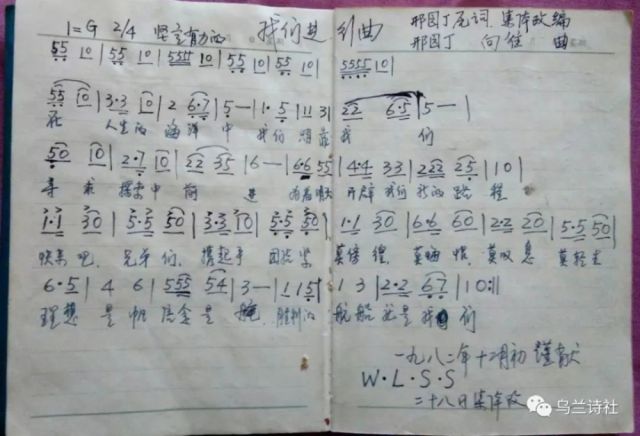 1=G 2/4 坚定有力的 我们进行曲 邢国丁尾词 集阵改编
邢国丁 向佳 曲
55 10 | 55 10 | 5555 10 | 55 10 | 55 10 | 5555 10 |
55 10 | 3·3 10 | 2 6·7 | 5 — | 1· 5 | 11 3 | 22 6·5 | 5 — |
在 人生的 海洋 中 我们 我 们
50 10 | 2·7 10 | 22 35 | 6 — | 66 55 | 4·4 33 | 222 25 | 10 |
寻 求 探索中 前 进 开辟 我们 我的 路 程
1·1 30 | 5·5 50 | 3·3 10 | 5·5 50 | 1·1 30 | 6·6 60 | 2·2 20 | 5·5 50 |
快来吧, 兄弟们, 携起手 团结紧 莫徬徨, 莫悔恨, 莫叹息 莫轻生
6·5 | 4 6 | 555 54 | 3 — | 1 1 5 | 1 3 | 2·2 67 | 10 :||
理想 是 帆 信念 是 胜利的 航船 是 我 们
一九八二年十二月初 谨献
W·L·S·S
二十八日集阵改
乌兰诗社